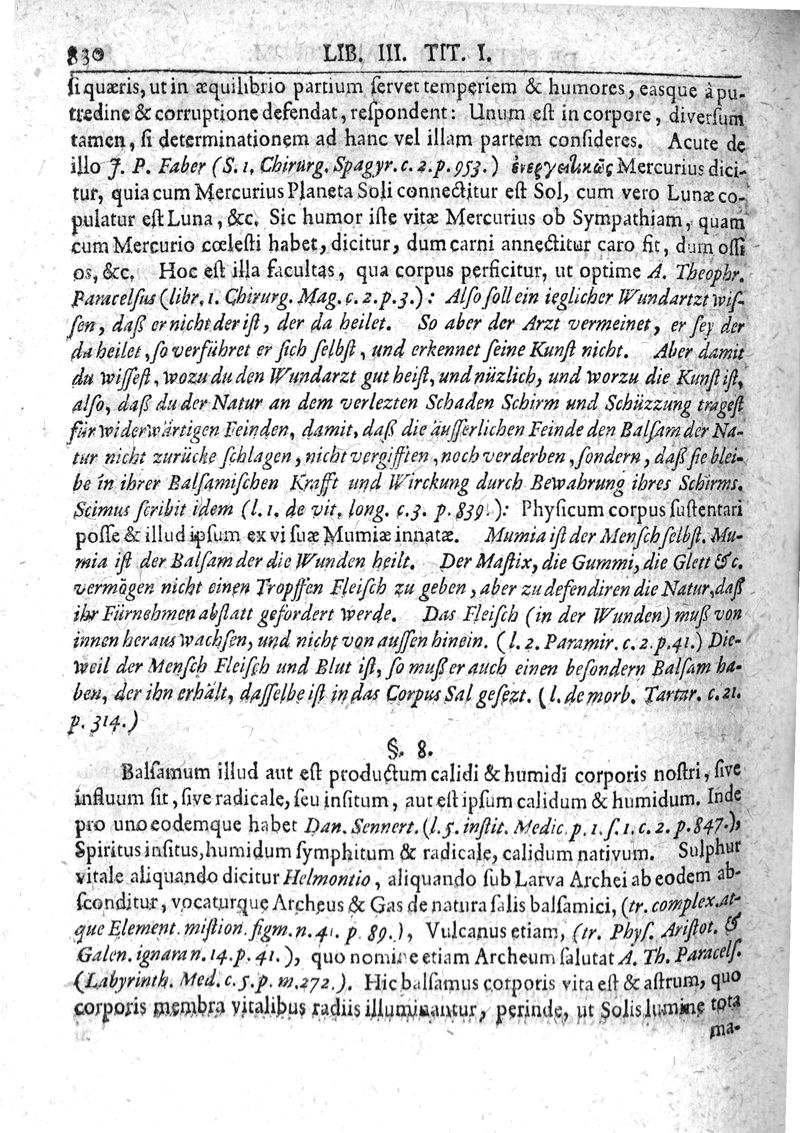 830 LIB. III. TIT. I.
ſi quæris, ut in æquilibrio partium ſervet temperiem & humores, easque à pu-
tredine & corruptione defendat, reſpondent: Unum eſt in corpore, diverſum
tamen, ſi determinationem ad hanc vel illam partem conſideres. Acute de
illo J. P. Faber (S. 1. Chirurg. Spagyr. c. 2. p. 953.) ἐνεργειτικῶς Mercurius dici-
tur, quia cum Mercurius Planeta Soli connectitur eſt Sol, cum vero Lunæ co-
pulatur eſt Luna, &c. Sic humor iſte vitæ Mercurius ob Sympathiam, quam
cum Mercurio cœleſti habet, dicitur, dum carni annectitur caro fit, dum oſſi
os, &c. Hoc eſt illa facultas, qua corpus perficitur, ut optime A. Theophr.
Paracelſus (libr. 1. Chirurg. Mag. c. 2. p. 3.): Alſo ſoll ein ieglicher Wundartzt wiſ-
ſen, daß er nicht der iſt, der da heilet. So aber der Arzt vermeinet, er ſey der
da heilet, ſo verführet er ſich ſelbſt, und erkennet ſeine Kunſt nicht. Aber damit
du wiſſeſt, wozu du den Wundarzt gut heiſt, und nüzlich, und worzu die Kunſt iſt,
alſo, daß du der Natur an dem verlezten Schaden Schirm und Schüzzung trageſt
für widerwärtigen Feinden, damit, daß die äuſſerlichen Feinde den Balſam der Na-
tur nicht zurücke ſchlagen, nicht vergifften, noch verderben, ſondern, daß ſie blei-
be in ihrer Balſamiſchen Krafft und Wirckung durch Bewahrung ihres Schirms.
Scimus ſcribit idem (l. 1. de vit. long. c. 3. p. 839.): Phyſicum corpus ſuſtentari
poſſe & illud ipſum ex vi ſuæ Mumiæ innatæ. Mumia iſt der Menſch ſelbſt. Mu-
mia iſt der Balſam der die Wunden heilt. Der Maſtix, die Gummi, die Glett &c.
vermögen nicht einen Tropffen Fleiſch zu geben, aber zu defendiren die Natur, daß
ihr Fürnehmen abſtatt gefordert werde. Das Fleiſch (in der Wunden) muß von
innen heraus wachſen, und nicht von auſſen hinein. (l. 2. Paramir. c. 2. p. 41.) Die-
weil der Menſch Fleiſch und Blut iſt, ſo muß er auch einen beſondern Balſam ha-
ben, der ihn erhält, daſſelbe iſt in das Corpus Sal geſezt. (l. de morb. Tartar. c. 21.
p. 314.)
§. 8.
Balſamum illud aut eſt productum calidi & humidi corporis noſtri, ſive
influum ſit, ſive radicale, ſeu inſitum, aut eſt ipſum calidum & humidum. Inde
pro uno eodemque habet Dan. Sennert. (l. 5. inſtit. Medic. p. 1. ſ. 1. c. 2. p. 847.),
Spiritus inſitus, humidum ſymphitum & radicale, calidum nativum. Sulphur
vitale aliquando dicitur Helmontio, aliquando ſub Larva Archei ab eodem ab-
ſconditur, vocaturque Archeus & Gas de natura ſalis balſamici, (tr. complex. at-
que Element. miſtion. figm. n. 41. p. 89.), Vulcanus etiam, (tr. Phyſ. Ariſtot. &
Galen. ignara n. 14. p. 41.), quo nomine etiam Archeum ſalutat A. Th. Paracelſ.
(Labyrinth. Med. c. 5. p. m. 272.). Hic balſamus corporis vita eſt & aſtrum, quo
corporis membra vitalibus radiis illuminantur, perinde, ut Solis lumine tota
ma-